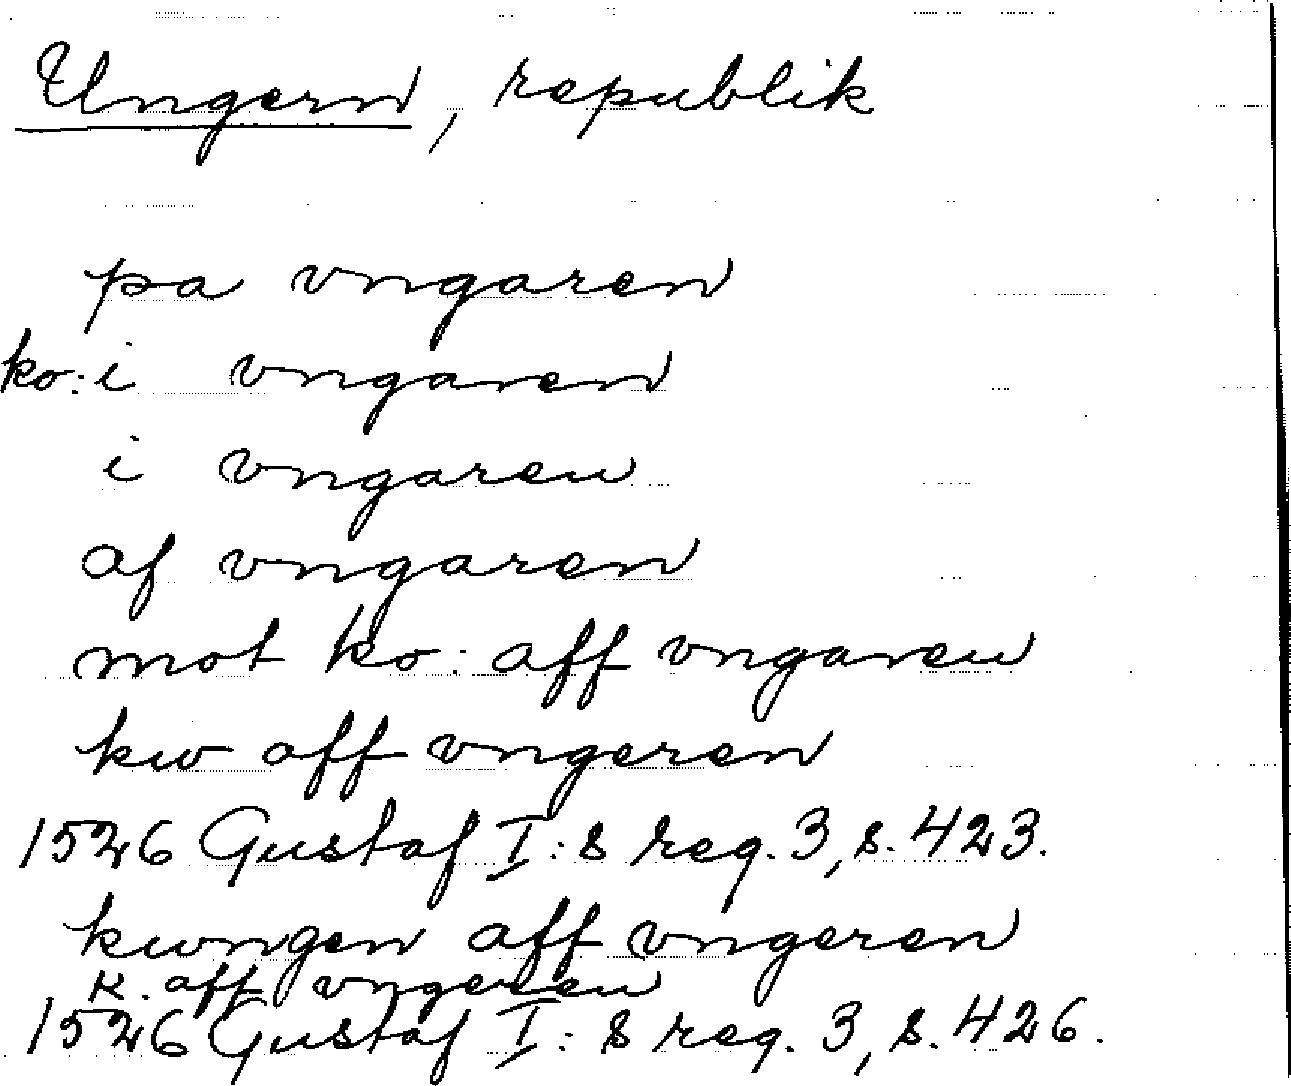 Ungern, republik
pa vngaren
ko: i vngaren
i vngaren
af vngaren
mot ko: aff vngaren
kw aff vngeren
1526 Gustaf I:s reg. 3, s. 423.
kwngen aff vngeren
K. aff vngeren
1526 Gustaf I:s reg. 3, s. 426.